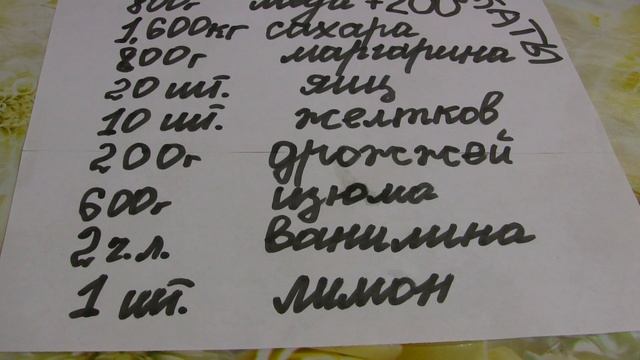 800г +200г
1,600кг сахара
800г маргарина
20 шт. яиц
10 шт. желтков
200г дрожжей
600г изюма
2 ч.л. ванилина
1 шт. лимон